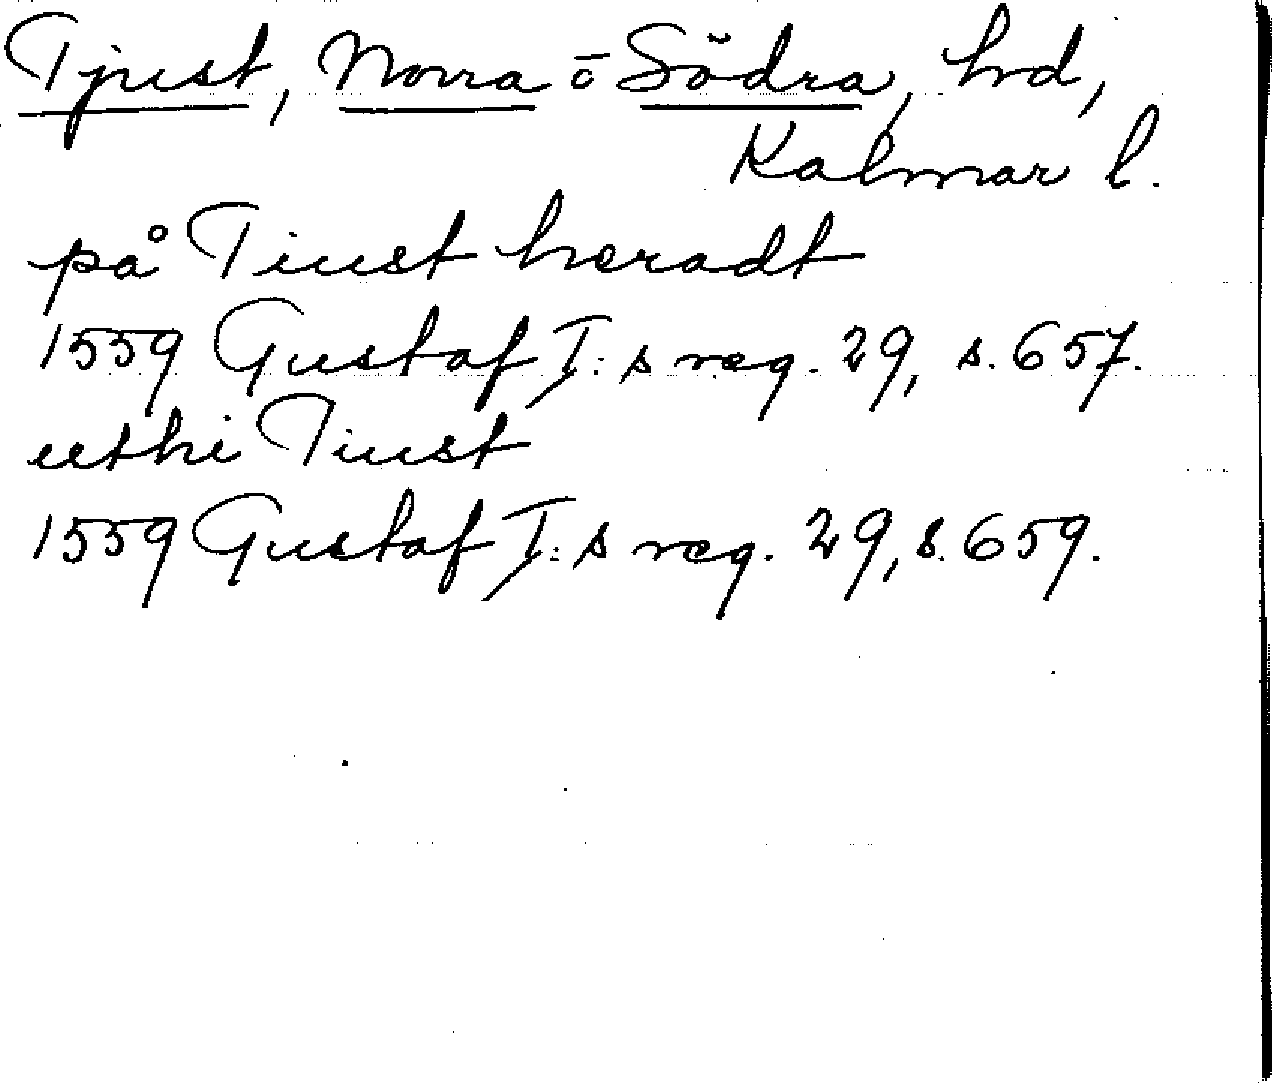 Tjust, Norra o Södra, hrd,
Kalmar l.
på Tiust heradt
1559 Gustaf I:s reg. 29, s. 657.
uthi Tiust
1559 Gustaf I:s reg. 29, s. 659.